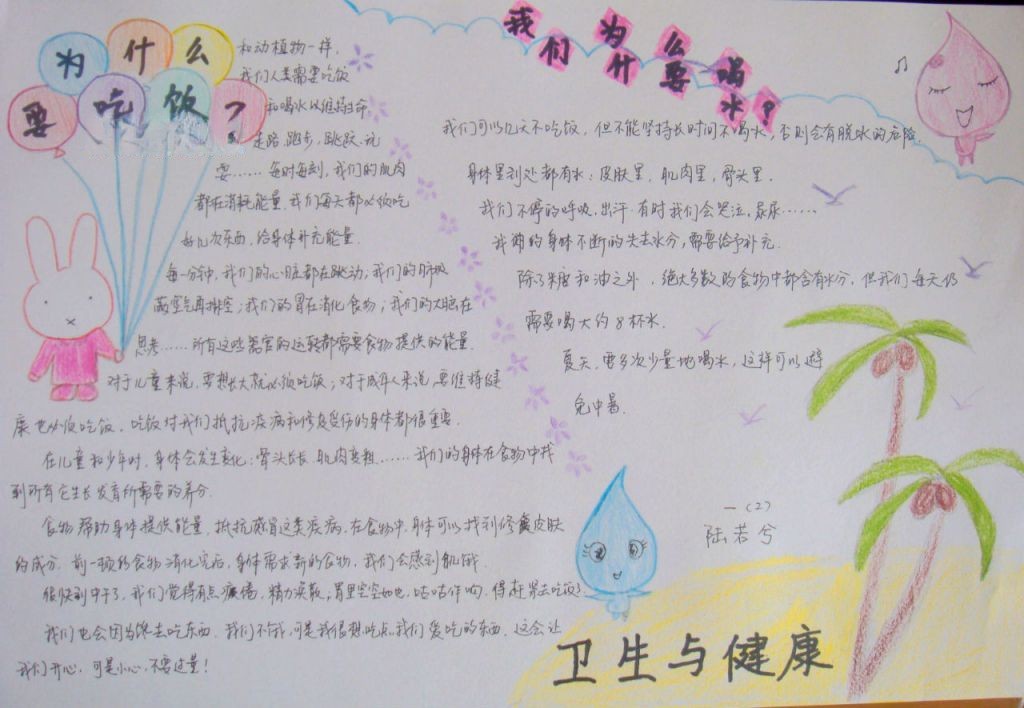 为什么
要吃饭？
和动植物一样，
我们人类需要吃饭
和喝水以维持生命。
走路、跑步、跳跃、玩
耍……每时每刻，我们的肌肉
都在消耗能量，我们每天都必须吃
好几次东西，给身体补充能量。
每一分钟，我们的心脏都在跳动；我们的肺吸
满空气再排空；我们的胃在消化食物；我们的大脑在
思考……所有这些器官的运转都需要食物提供的能量。
对于儿童来说，要想长大就必须吃饭；对于成年人来说，要维持健
康也必须吃饭。吃饭对我们抵抗疾病和修复受伤的身体都很重要。
在儿童和少年时，身体会发生变化：骨头长长，肌肉变粗……我们的身体在食物中找
到所有它生长发育所需要的养分。
食物帮助身体提供能量，抵抗感冒这类疾病，在食物中，身体可以找到修复皮肤
的成分。前一顿的食物消化完后，身体需求新的食物，我们会感到饥饿。
很快到中午了，我们觉得有点疲倦，精力涣散；胃里空空如也，咕咕作响，得赶紧去吃饭！
我们也会因为馋去吃东西。我们不饿，可是我很想吃点我们爱吃的东西，这会让
我们开心，可是小心，不要过量！
我们为什么要喝水？
我们可以几天不吃饭，但不能坚持长时间不喝水，否则会有脱水的危险。
身体里到处都有水：皮肤里，肌肉里，骨头里。
我们不停的呼吸，出汗，有时我们会哭泣，尿尿……，
我们的身体不断的失去水分，需要给予补充。
除了糖和油之外，绝大多数的食物中都含有水分，但我们每天仍
需要喝大约8杯水。
夏天，要多次少量地喝水，这样可以避
免中暑。
一（2）
陆若兮
卫生与健康